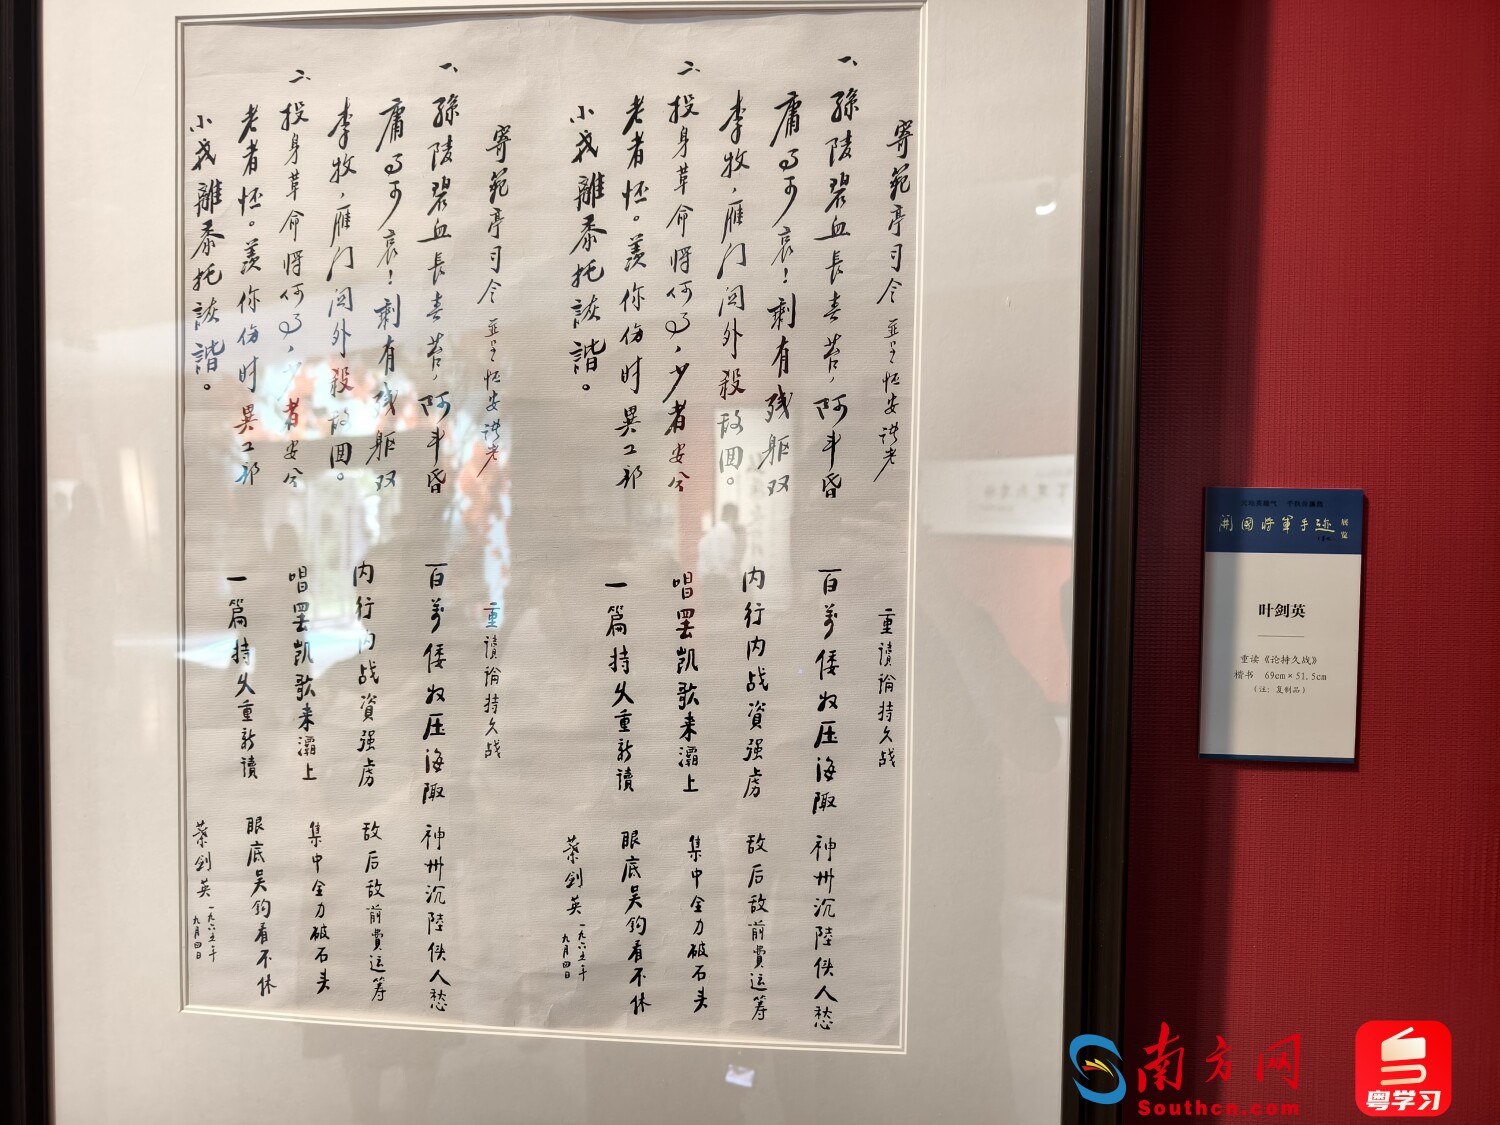 寄範亭司令 並呈怀安诸老
一、孫陵碧血長春苔，阿斗昏
庸可哀！剩有残躯双
李牧，雁门関外殺敌囬。
二、投身革命将何，少者安兮
老者怀。羡你伤时異工部
小我離黍托詼諧。
重讀論持久战
百萬倭奴压海陬 神州沉陸使人愁
内行内战資强虏 敌后敌前費运筹
唱罢凱歌来灞上 集中全力破石头
一篇持久重新讀 眼底吴钩看不休
葉剑英 一九六五年
九月四日
寄範亭司令 並呈怀安诸老
一、孫陵碧血長春苔，阿斗昏
庸可哀！剩有残躯双
李牧，雁门関外殺敌囬。
二、投身革命将何，少者安兮
老者怀。羡你伤时異工部
小我離黍托詼諧。
重讀論持久战
百萬倭奴压海陬 神州沉陸使人愁
内行内战資强虏 敌后敌前費运筹
唱罢凱歌来灞上 集中全力破石头
一篇持久重新讀 眼底吴钩看不休
葉剑英 一九六五年
九月四日
開國将軍手迹 展览
叶剑英
重读《论持久战》
楷书 69cm×51.5cm
（注：复制品）
南方网
Southcn.com
粤学习